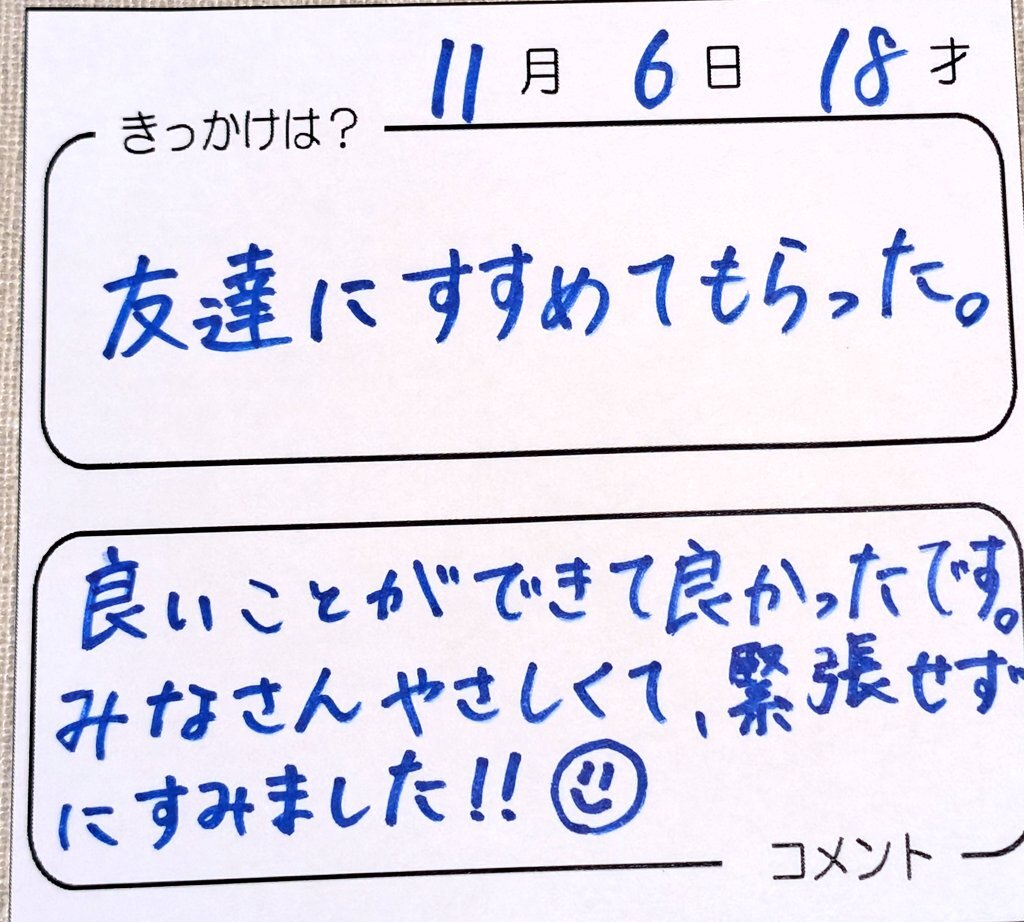 11月 6日 18才
きっかけは？
友達にすすめてもらった。
良いことができて良かったです。
みなさんやさしくて、緊張せず
にすみました!!
コメント